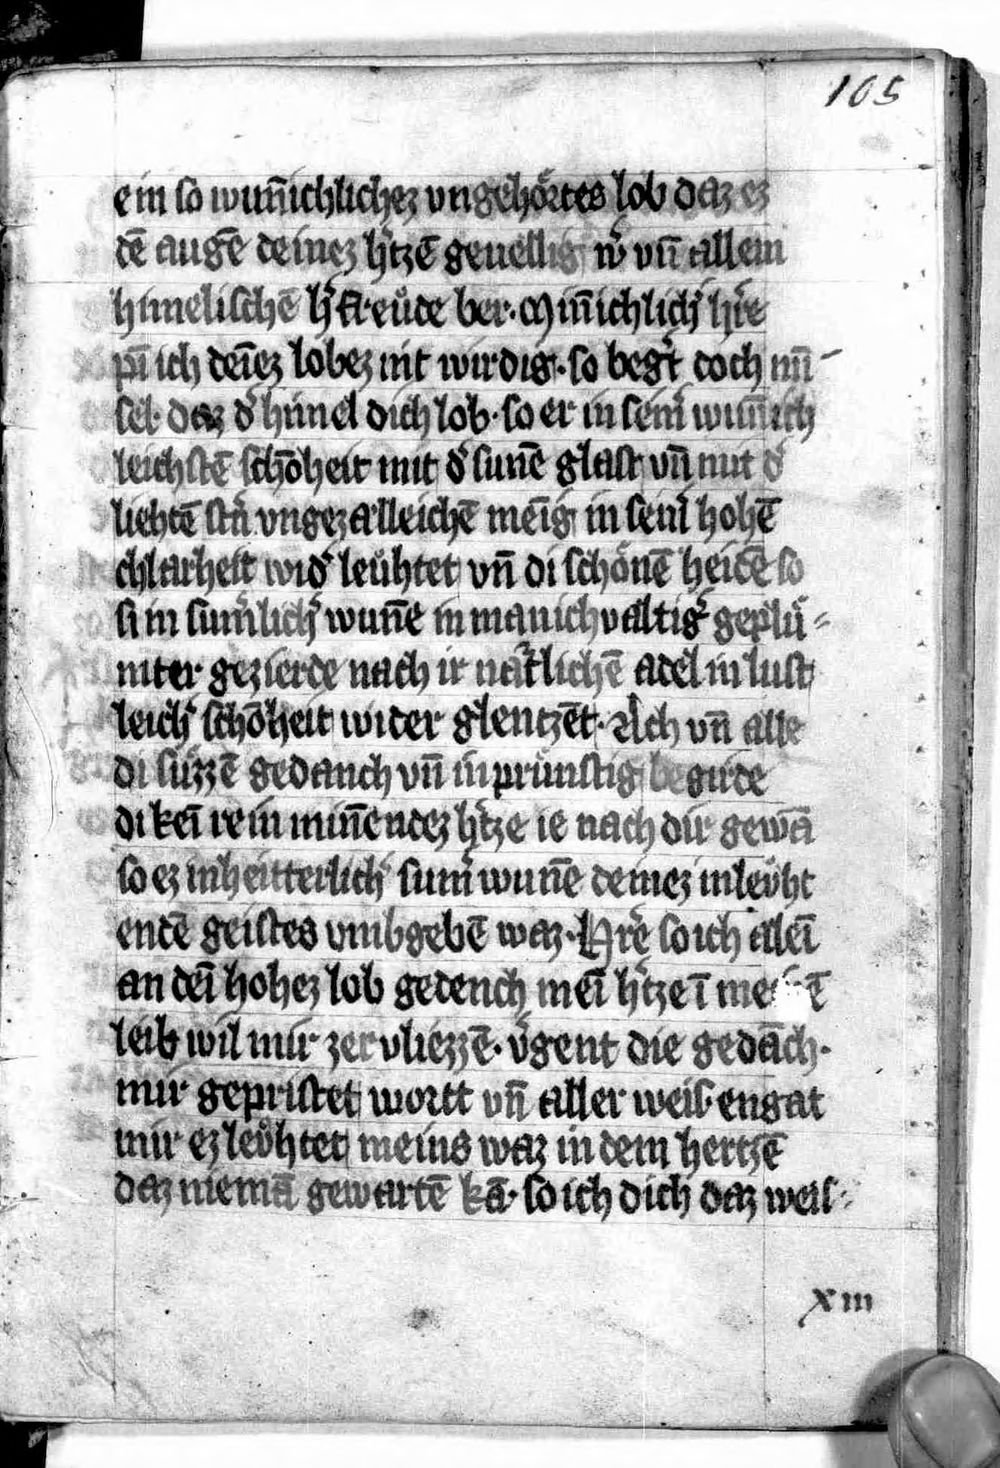 105
ein so wun̄ichlichez vngehoͤrtes lob daz ez
dē augē deinez h͛tzē geuellig w͛ vn̄ allem
himelischē h͛ freuͤde ber · Min̄ichlich͛ h͛re
pī ich deīez lobez nit wirdig · so beg͛t doch mī
sel · daz d͛ himel dich lob · so er in seim͛ wun̄ich
leichstē schoͤheit mit d͛ sunē glast vn̄ mit d͛
liehtē st͛n vngezalleichē menīg in sein͛ hohē
chlarheit wid͛ leuͤhtet vn̄ di schoͤnē heidē so
si in sum͛lich͛ wun̄e in manichualtig͛ gepluͤ-
mter gezierde nach ir nat͛lichē adel in lust
leich͛ schoͤheit wider glentzēt · Ach vn̄ alle
di suͤzzē gedanch vn̄ inpruͤnstig begirde
di keī rein min̄endez h͛tze ie nach dir gewā
so ez in heitterlich͛ sum͛wun̄e deinez inleuͤht
entē geistes vmbgebē waz · Hr͛e so ich alleī
an deī hohez lob gedench meī h͛tze ī
leib wil mir zervliezzē · v͛gent die gedāch ·
mir gepristet wortt vn̄ aller weis engat
mir ez leuͤhtet meins waz in dem hertzē
daz niemā gewartē kā · so ich dich daz weis-
XIII